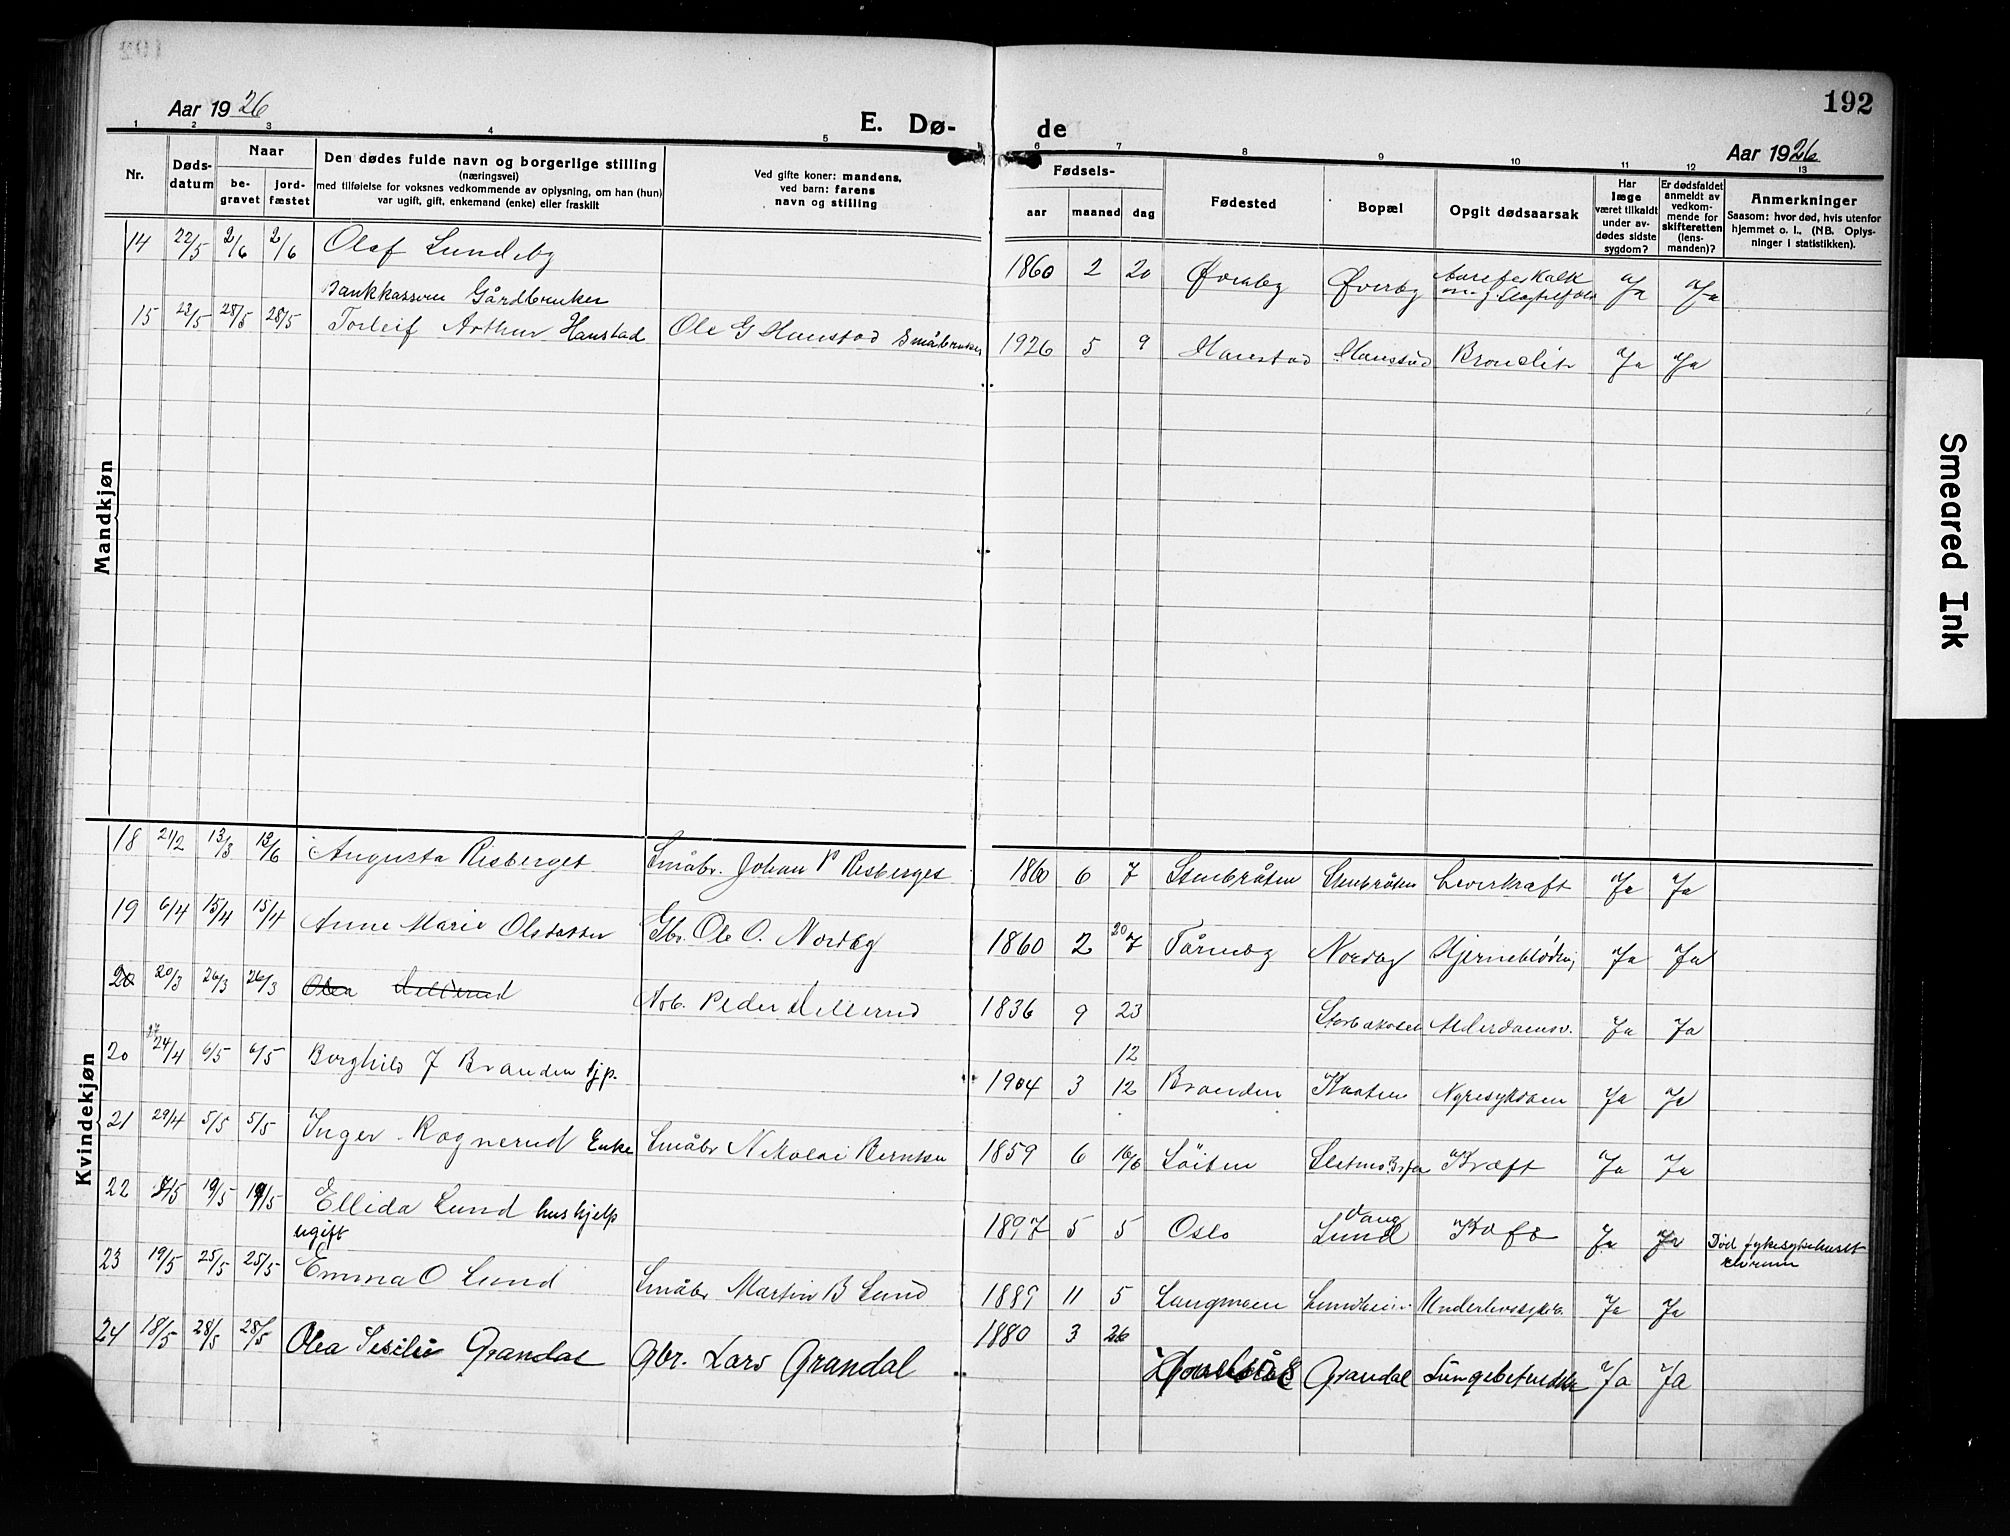 192
Aar 1926
E. Dø- de
Aar 1926
1 2 3 4 5 6 7 8 9 10 11 12 13
Nr.
Døds-
datum
Naar
be-
gravet
jord-
fæstet
Den dødes fulde navn og borgerlige stilling
(næringsvei)
med tilføielse for voksnes vedkommende av oplysning, om han (hun)
var ugift, gift, enkemand (enke) eller fraskilt
Ved gifte koner: mandens,
ved barn: farens
navn og stilling
Fødsels-
aar maaned dag
Fødested
Bopæl
Opgit dødsaarsak
Har
læge
været tilkaldt
under av-
dødes sidste
sygdom?
Er dødsfaldet
anmeldt av
vedkom-
mende for
skifteretten
(lens-
manden)?
Anmerkninger
Saasom: hvor død, hvis utenfor
hjemmet o. l., (NB. Oplys-
ninger i statistikken).
Mandkjøn
14 22/5 2/6 2/6 Olaf Lundeby 1860 2 20 Øverby Øverby Ja Ja
Gårdbruker
15 23/5 28/5 28/5 Torleif Arthur Hanstad Ole G Hanstad Småbruker 1926 5 9 Hanstad Hanstad Ja Ja
Kvindekjøn
18 21/2 13/3 Augusta Risberget Småbr. Johan P Risberget 1860 6 7 Stenbråten Stenbråten Leverkræft Ja Ja
19 6/4 15/4 15/4 Anne Marie Olsdatter Gbr. Ole O. Nordby 1860 2 Tårneby Nordby Hjerneblødning Ja Ja
20 20/3 26/3 26/3 Olea Arb. Peder 1836 9 23 Ja Ja
20 24/4 6/5 6/5 Borghild J Branden 1904 3 12 Branden Nyresykdom Ja Ja
12
21 29/4 5/5 5/5 Inger Rognerud Enke Småbr Nikolai Berntsen 1859 6 Løiten Kræft Ja Ja
22 19/5 19/5 Ellida Lund hushjelp 1897 5 5 Oslo Lund Ja Ja
ugift
23 19/5 25/5 25/5 Emma O Lund Småbr Martin B Lund 1889 11 5 Langmoen Lundheim Ja Ja
24 18/5 28/5 28/5 Olea Sesilie Grandal Gbr. Lars Grandal 1880 3 26 Grandal Lungebetendelse Ja Ja
Smeared Ink